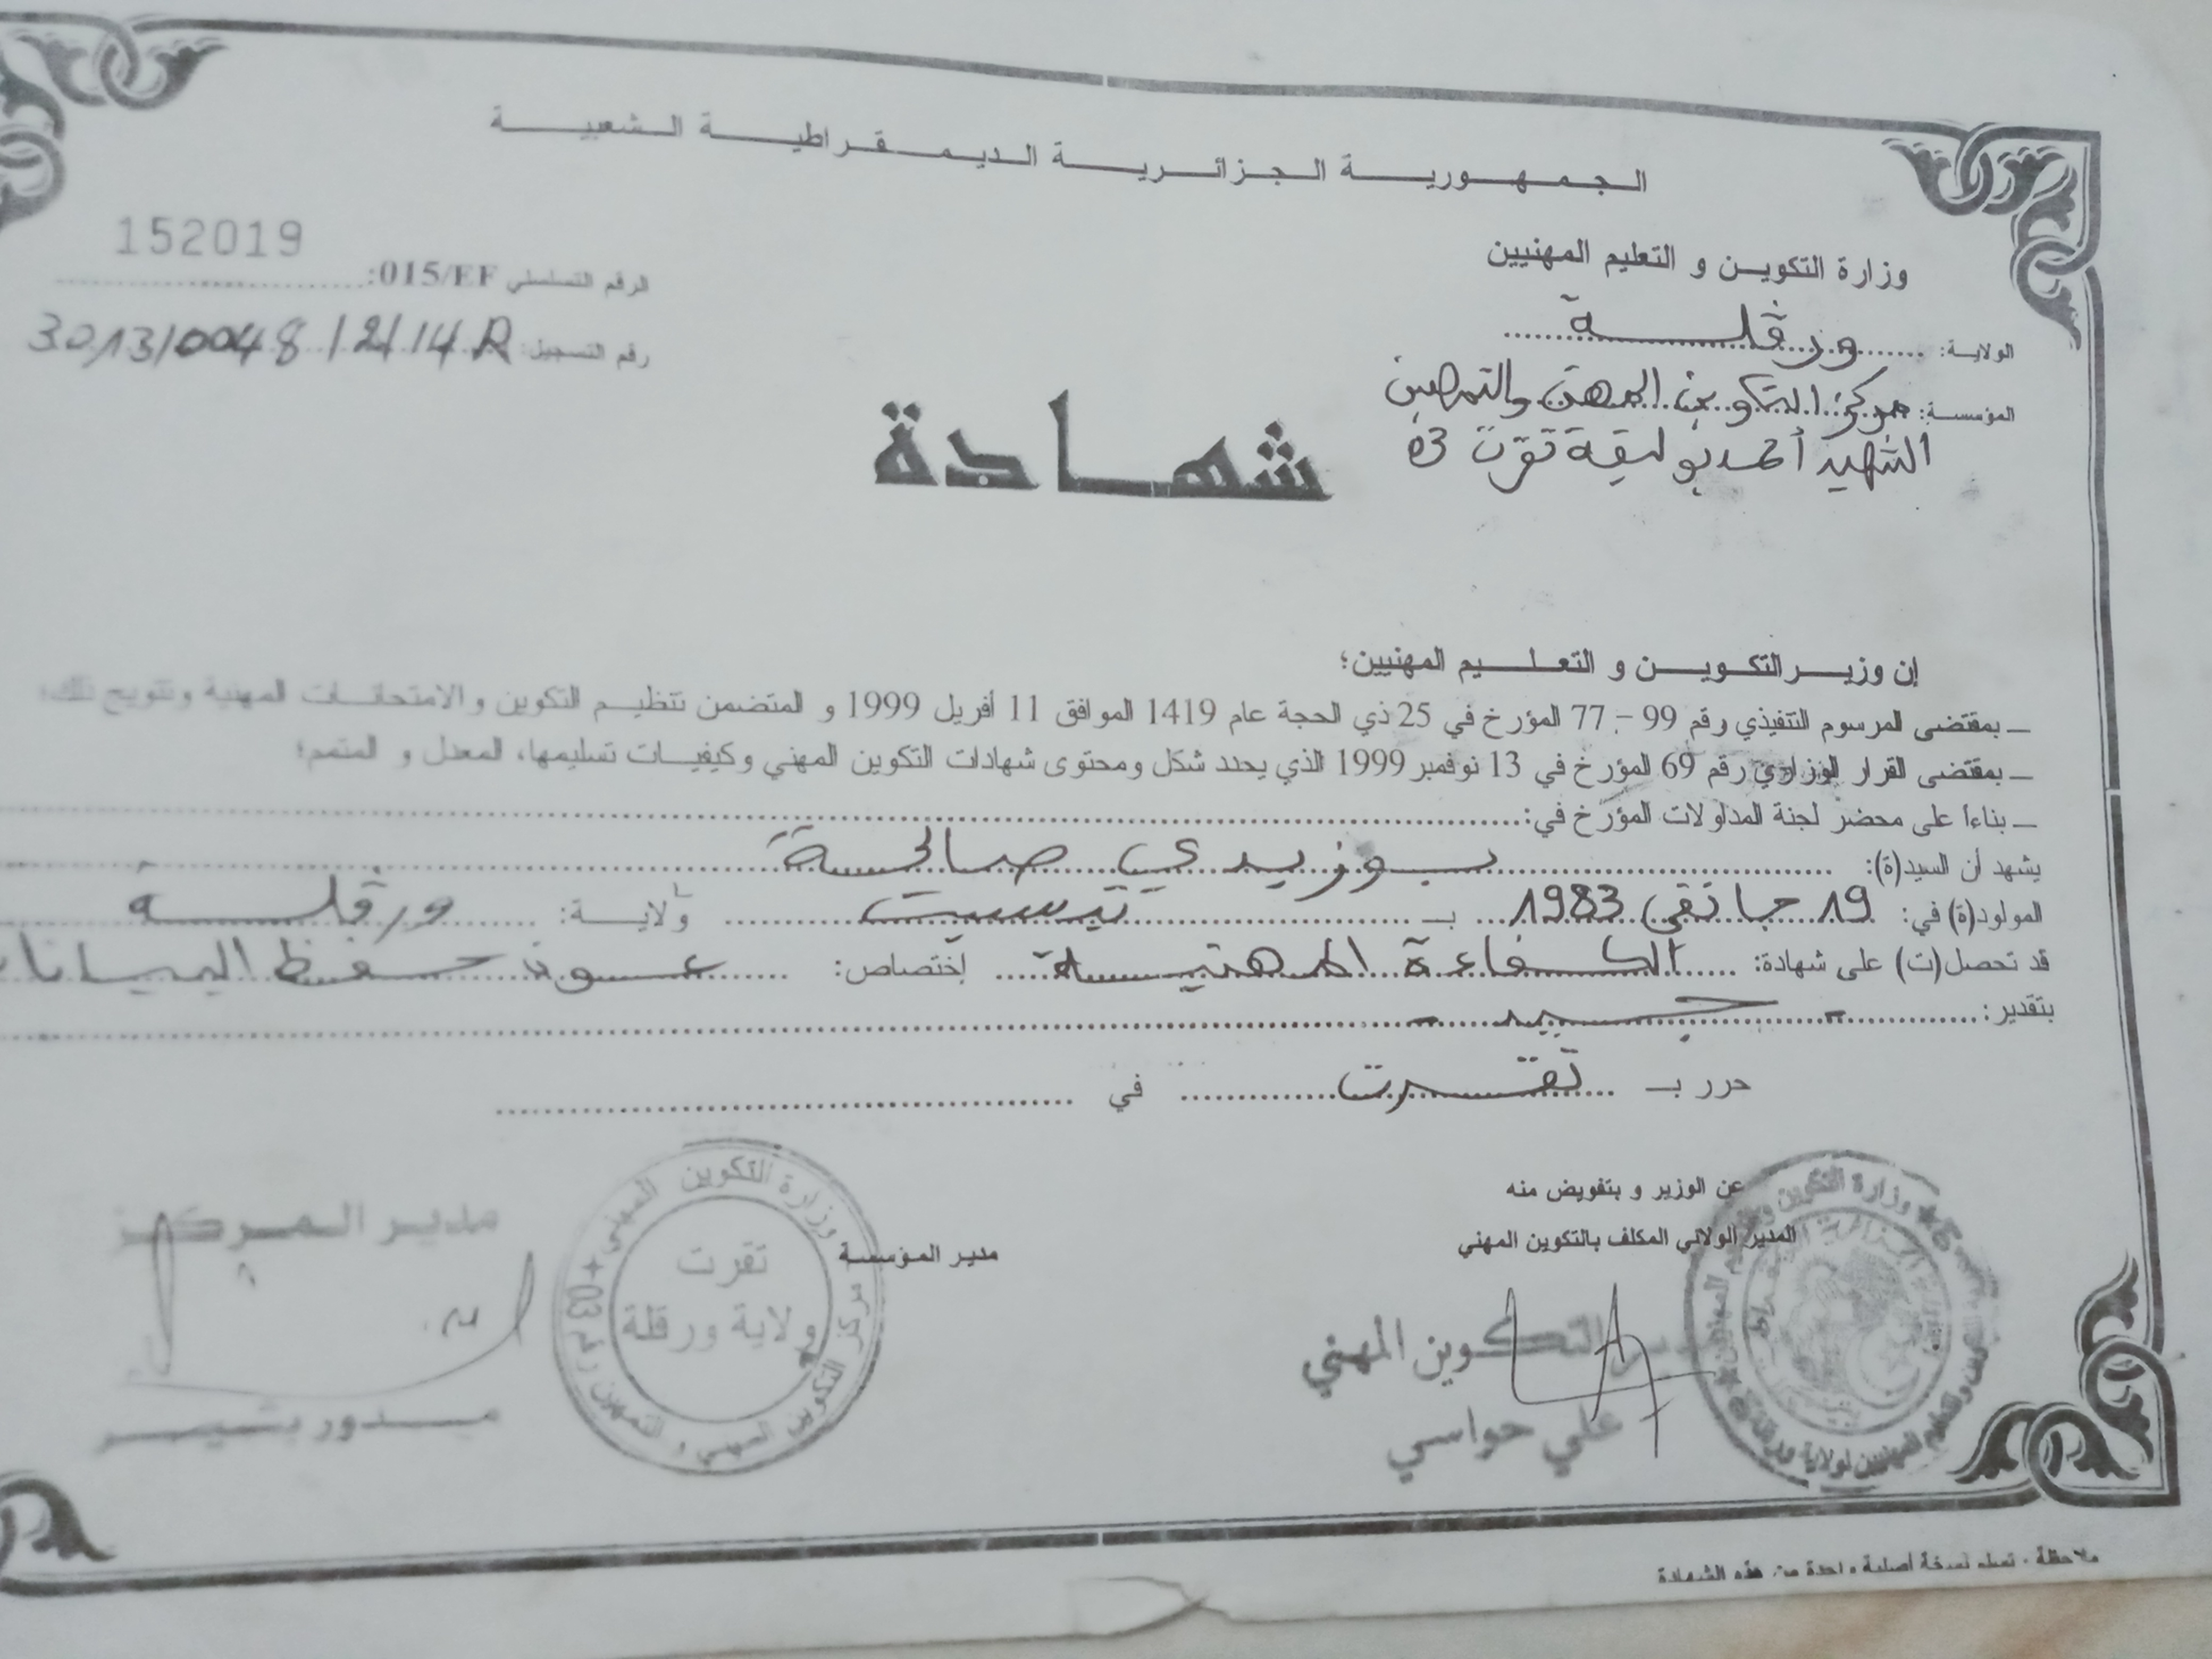 الجمهورية الجزائرية الديمقراطية الشعبية
وزارة التكوين و التعليم المهنيين
الولاية: ورقلة
المؤسسة: مركز التكوين المهني والتمهين
الشهيد أحمد بوليفة تقرت 03
الرقم التسلسلي 015/EF: 152019
رقم التسجيل: 3013/0048/2/14R
شهادة
إن وزير التكوين و التعليم المهنيين؛
ـ بمقتضى المرسوم التنفيذي رقم 99 - 77 المؤرخ في 25 ذي الحجة عام 1419 الموافق 11 أفريل 1999 و المتضمن تنظيم التكوين و الامتحانات المهنية وتتويج ذلك؛
ـ بمقتضى القرار الوزاري رقم 69 المؤرخ في 13 نوفمبر 1999 الذي يحدد شكل ومحتوى شهادات التكوين المهني وكيفيات تسليمها، المعدل و المتمم؛
ـ بناءا على محضر لجنة المداولات المؤرخ في:
يشهد أن السيد(ة): بوزيدي صالحة
المولود(ة) في: 19 جانفي 1983 بـ تبسبست ولاية: ورقلة
قد تحصل(ت) على شهادة: الكفاءة المهنية إختصاص: عون حفظ البيانات
بتقدير: - جيد -
حرر بـ تقرت في
عن الوزير و بتفويض منه
المدير الولائي المكلف بالتكوين المهني
مدير التكوين المهني
علي حواسي
مدير المؤسسة
وزارة التكوين المهني
مركز التكوين المهني و التمهين رقم 03
تقرت
ولاية ورقلة
مدير المركز
مدور بشير
ملاحظة: تسلم نسخة أصلية واحدة من هذه الشهادة